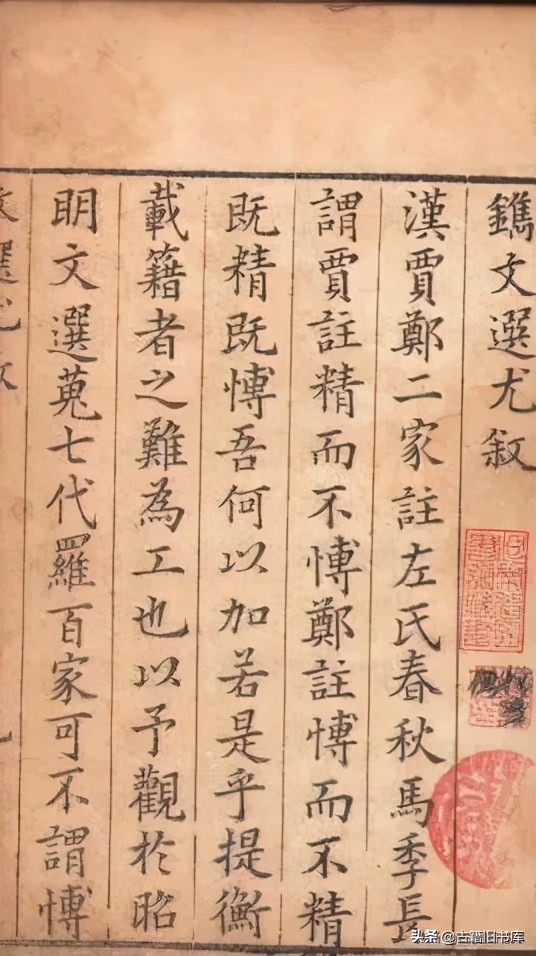 鐫文選尤敘
漢賈鄭二家註左氏春秋馬季長
謂賈註精而不愽鄭註愽而不精
既精既愽吾何以加若是乎提衡
載籍者之難為工也以予觀於昭
明文選蒐七代羅百家可不謂愽
文選尤敘
头条 @古籍旧书库